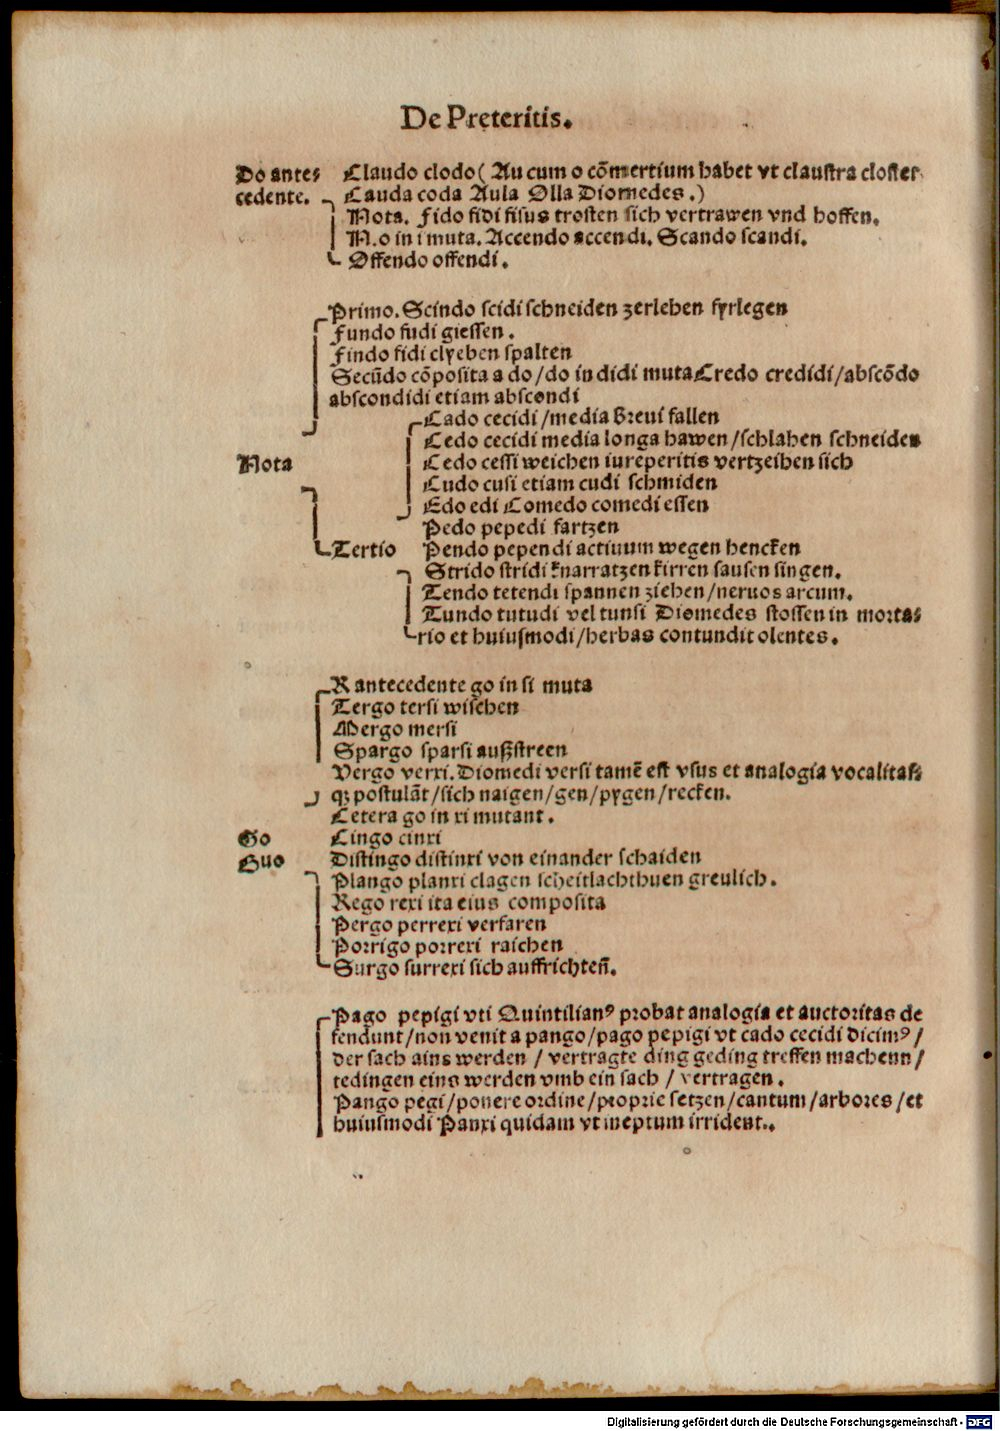 De Preteritis.
Do ante⸗ Claudo clodo( Au cum o cõmertium habet vt claustra closter
cedente. Cauda coda Aula Olla Diomedes.)
Nota. Fido fidi fisus trosten sich vertrawen vnd hoffen.
N.o in i muta. Accendo accendi. Scando scandi.
Offendo offendi.
Primo. Scindo scidi schneiden zerlehen fyrlegen
Fundo fudi giessen.
Findo fidi clyeben spalten
Secũdo cõposita a do/do in didi muta Credo credidi/abscõdo
abscondidi etiam abscondi
Cado cecidi/media breui fallen
Cedo cecidi media longa hawen/schlahen schneiden
Nota Cedo cessi weichen iureperitis vertzeihen sich
Cudo cusi etiam cudi schmiden
Edo edi Comedo comedi essen
Pedo pepedi fartzen
Tertio Pendo pependi actiuum wegen hencken
Strido stridi knarratzen kirren sausen singen.
Tendo tetendi spannen ziehen/neruos arcum.
Tundo tutudi vel tunsi Diomedes stossen in morta⸗
rio et huiusmodi/herbas contundit olentes.
R antecedente go in si muta
Tergo tersi wischen
Mergo mersi
Spargo sparsi außstreen
Vergo verxi. Diomedi versi tamẽ est vsus et analogia vocalitas⸗
qꝫ postulãt/sich naigen/gen/pygen/recken.
Cetera go in xi mutant.
Go Cingo cinxi
Guo Distingo distinxi von einander schaiden
Plango planxi clagen scheitlachthuen greulich.
Rego rexi ita eius composita
Pergo perrexi verfaren
Porrigo porrexi raichen
Surgo surrexi sich auffrichteñ.
Pago pepigi vti Quintilianꝰ probat analogia et auctoritas de
fendunt/non venit a pango/pago pepigi vt cado cecidi dicimꝰ/
der sach ains werden / vertragte ding geding treffen machenn/
tedingen eins werden vmb ein sach / vertragen.
Pango pegi/ponere ordine/proprie setzen/cantum/arbores/et
huiusmodi Panxi quidam vt ineptum irrident..
Digitalisierung gefördert durch die Deutsche Forschungsgemeinschaft - DFG